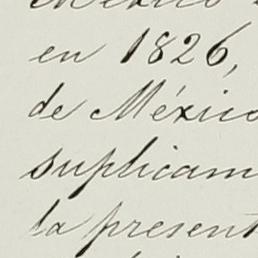 en 1826,
de México
suplicam
la present